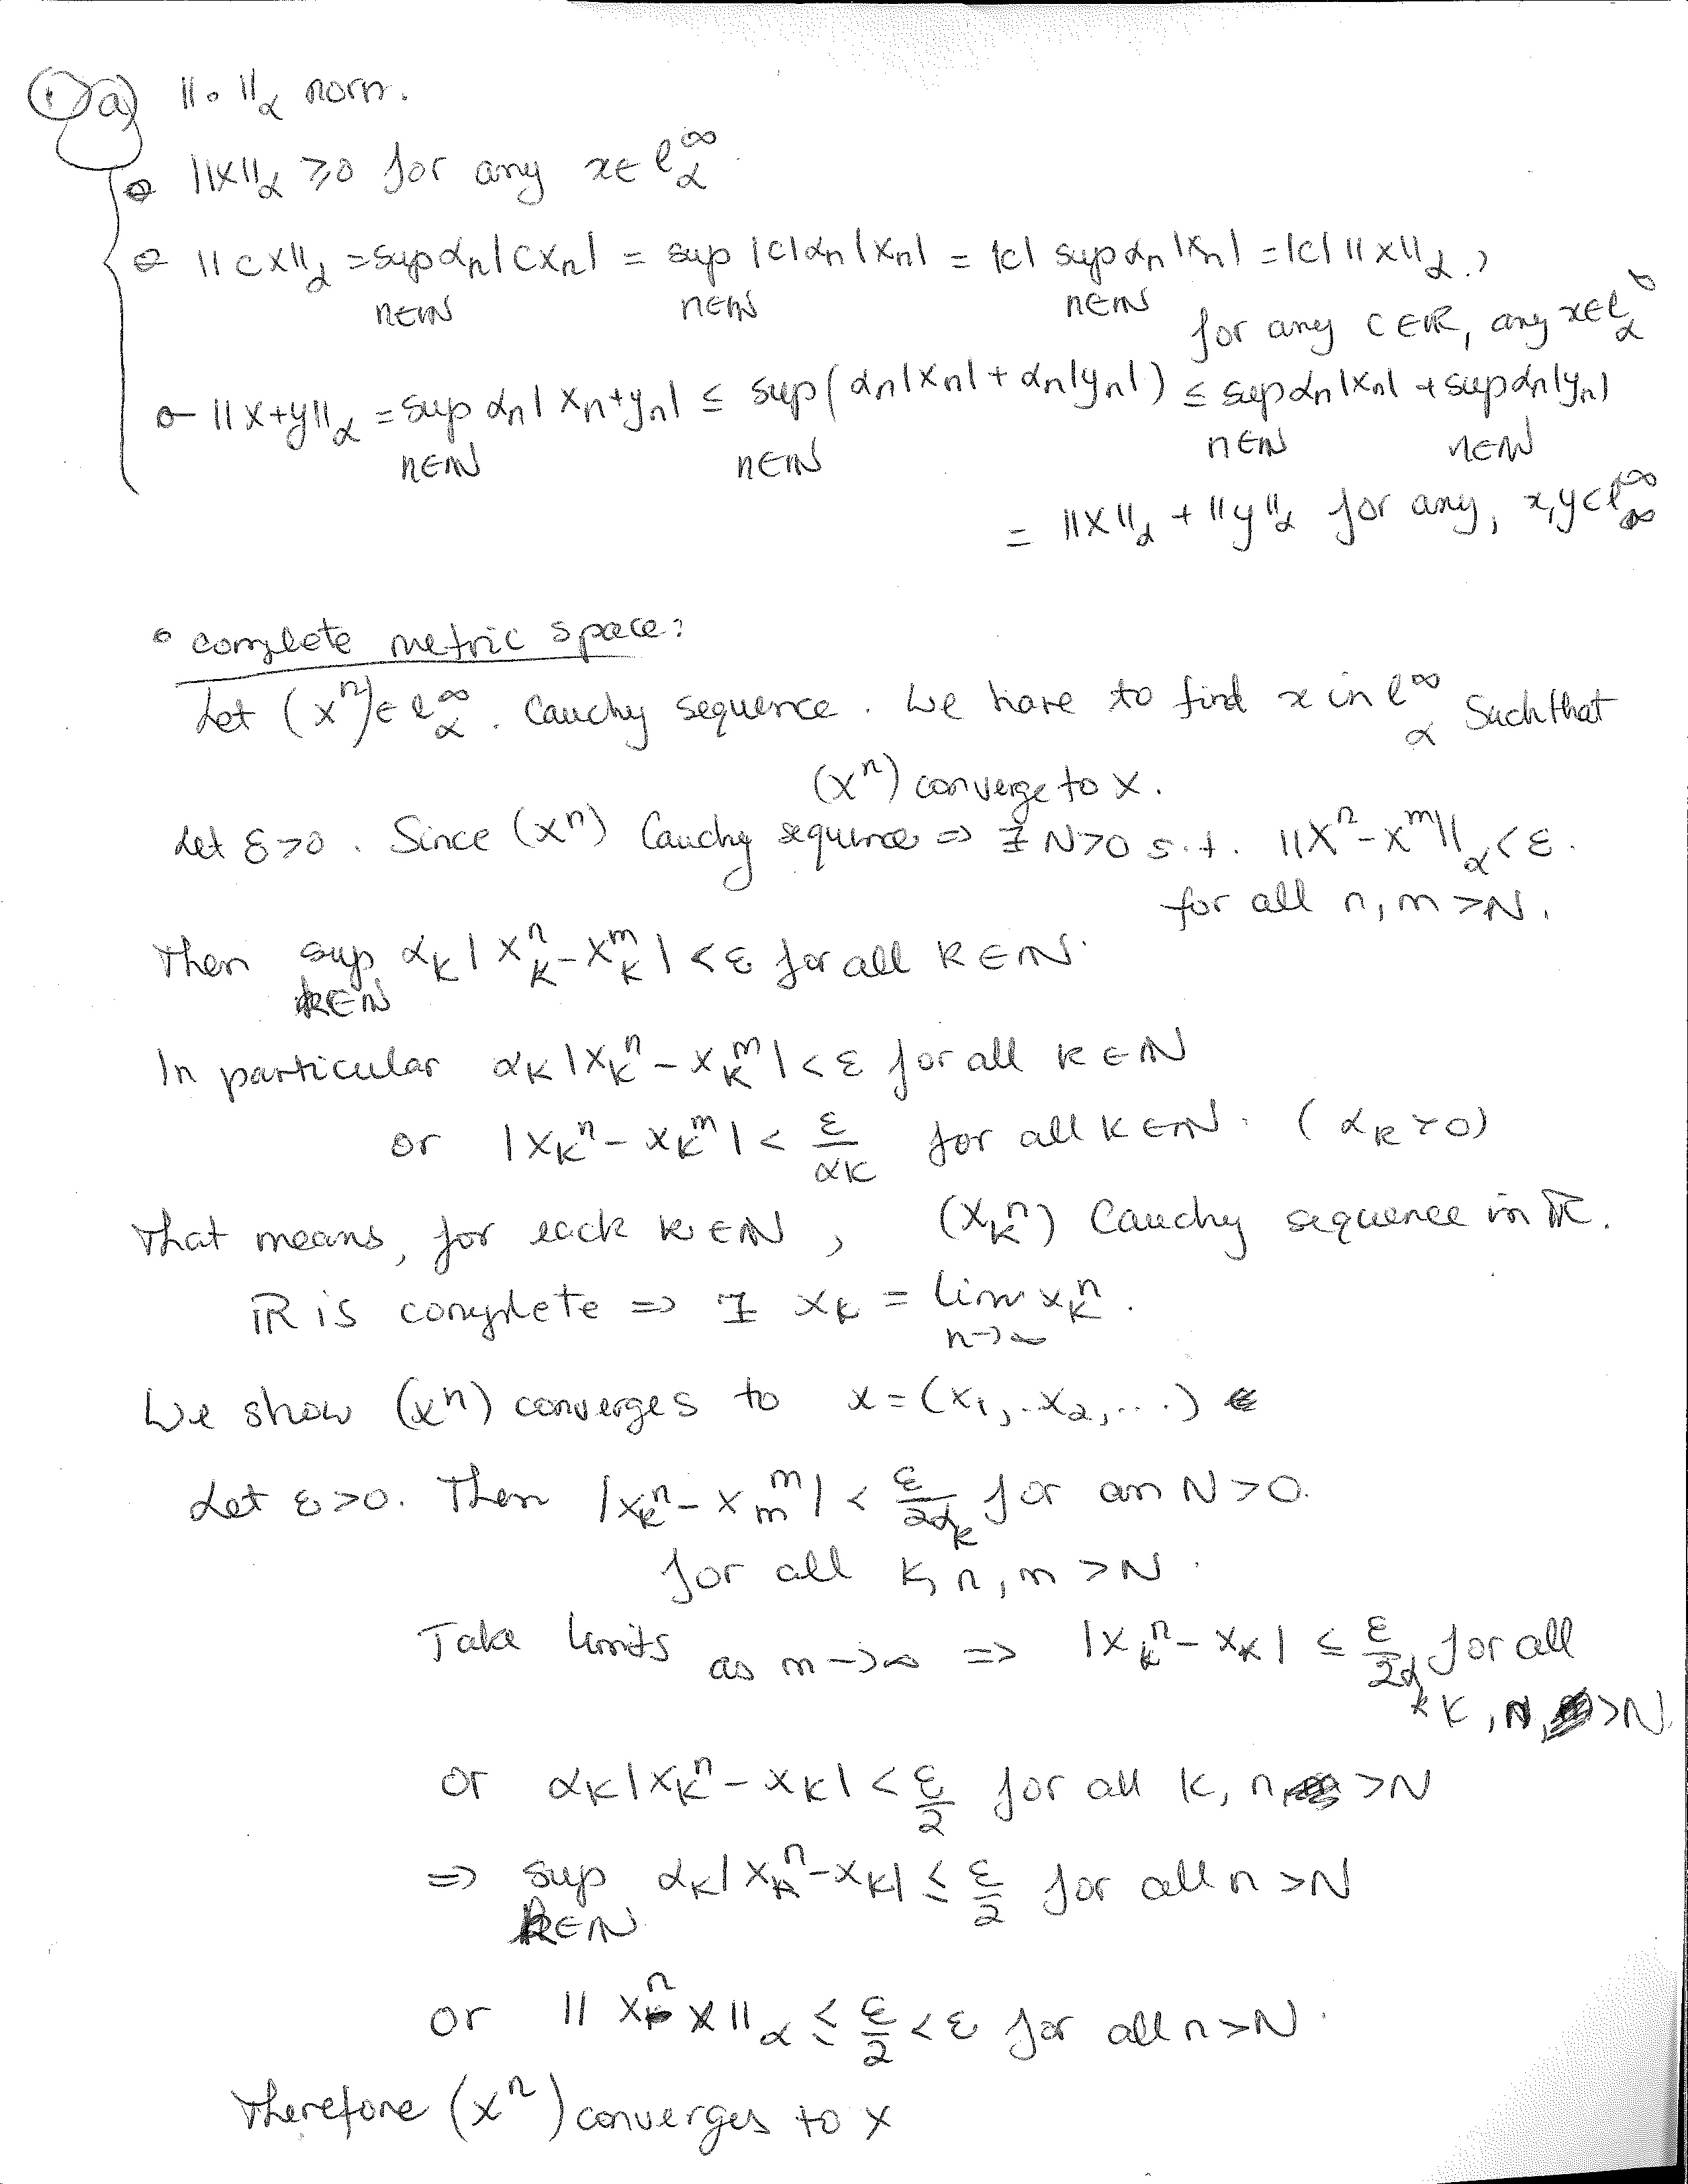 ① a) ||•||_α norm.
• ||x||_α ≥ 0 for any x ∈ l_α^∞.
• ||cx||_α = sup_{n∈ℕ} α_n|cx_n| = sup_{n∈ℕ} |c|α_n|x_n| = |c| sup_{n∈ℕ} α_n|x_n| = |c| ||x||_α,
for any c ∈ ℝ, any x ∈ l_α^∞
• ||x+y||_α = sup_{n∈ℕ} α_n|x_n+y_n| ≤ sup_{n∈ℕ} (α_n|x_n| + α_n|y_n|) ≤ sup_{n∈ℕ} α_n|x_n| + sup_{n∈ℕ} α_n|y_n|
= ||x||_α + ||y||_α for any, x,y ∈ l_∞^∞
• complete metric space:
Let (x^n) ∈ l_α^∞. Cauchy sequence. We have to find x in l_α^∞ such that
(x^n) converge to x.
Let ε>0. Since (x^n) Cauchy sequence ⇒ ∃ N>0 s.t. ||x^n - x^m||_α < ε.
for all n, m > N.
Then sup_{k∈ℕ} α_k |x_k^n - x_k^m| < ε for all k ∈ ℕ.
In particular α_k |x_k^n - x_k^m| < ε for all k ∈ ℕ
or |x_k^n - x_k^m| < ε/α_k for all k ∈ ℕ. (α_k > 0)
That means, for each k ∈ ℕ, (x_k^n) Cauchy sequence in ℝ.
ℝ is complete ⇒ ∃ x_k = lim_{n→∞} x_k^n.
We show (x^n) converges to x = (x_1, x_2, ...)
Let ε>0. Then |x_k^n - x_m^m| < ε/2α_k for an N>0.
for all k, n, m > N.
Take limits as m→∞ ⇒ |x_k^n - x_k| ≤ ε/2α_k for all
k, n > N.
or α_k|x_k^n - x_k| < ε/2 for all k, n > N
⇒ sup_{k∈ℕ} α_k|x_k^n - x_k| ≤ ε/2 for all n > N
or ||x^n - x||_α ≤ ε/2 < ε for all n > N.
Therefore (x^n) converges to x